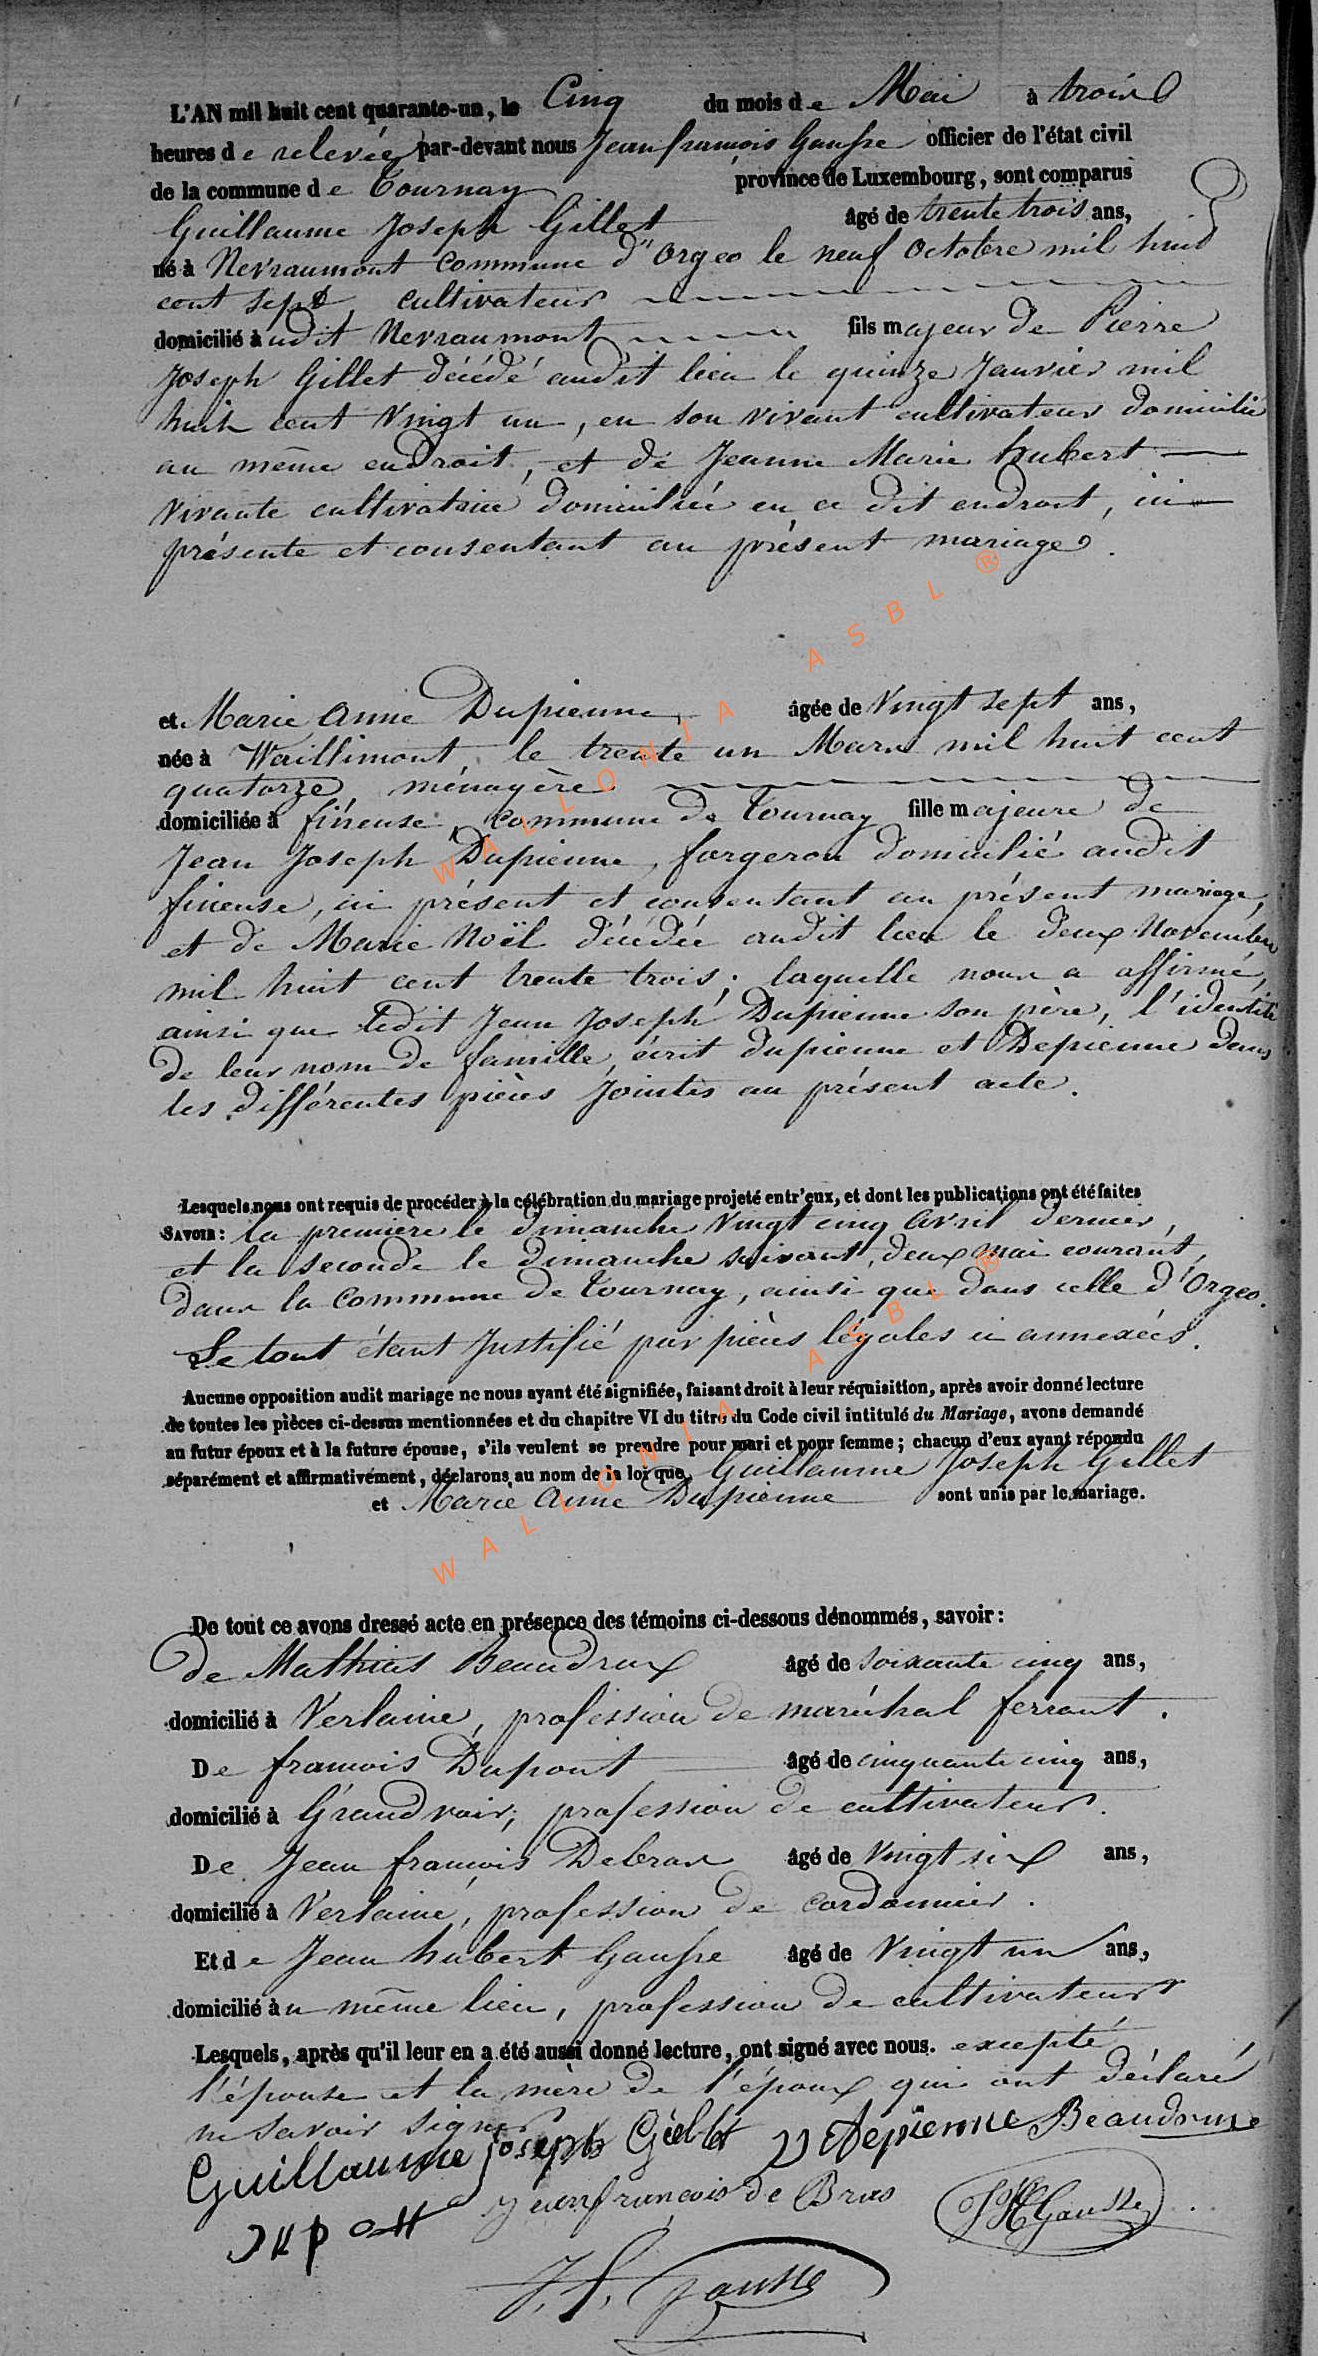 L'AN mil huit cent quarante-un, le Cinq du mois de Mai à trois
heures de relevée par-devant nous Jean françois Gausse officier de l'état civil
de la commune de Tournay province de Luxembourg, sont comparus
Guillaume Joseph Gillet âgé de trente trois ans,
né à Nevraumont commune d'Orgeo le neuf Octobre mil huit
cent sept, cultivateur
domicilié audit Nevraumont fils majeur de Pierre
Joseph Gillet décédé audit lieu le quinze Janvier mil
huit cent vingt un, en son vivant cultivateur domicilié
au même endroit, et de Jeanne Marie hubert
vivante cultivatrice domiciliée en ce dit endroit, ici
présente et consentant au présent mariage.
et Marie Anne Dupienne, âgée de Vingt sept ans,
née à Waillimont, le trente un Mars mil huit cent
quatorze, ménagère
domiciliée à fineuse, commune de Tournay fille majeure de
Jean Joseph Dupienne, forgeron domicilié audit
fineuse, ici présent et consentant au présent mariage,
et de Marie Noël décédée audit lieu le deux Novembre
mil huit cent trente trois; laquelle nous a affirmé,
ainsi que ledit Jean Joseph Dupienne son père, l'identité
de leur nom de famille, écrit dupienne et Depienne dans
les différentes pièces Jointes au présent acte.
Lesquels nous ont requis de procéder à la célébration du mariage projeté entr'eux, et dont les publications ont été faites
SAVOIR: la première le dimanche Vingt cinq Avril dernier,
et la seconde le dimanche suivant, deux mai courant,
dans la Commune de Tournay, ainsi que dans celle d'Orgeo.
Le tout étant Justifié par pièces légales ci annexées.
Aucune opposition audit mariage ne nous ayant été signifiée, faisant droit à leur réquisition, après avoir donné lecture
de toutes les pièces ci-dessus mentionnées et du chapitre VI du titre du Code civil intitulé du Mariage, avons demandé
au futur époux et à la future épouse, s'ils veulent se prendre pour mari et pour femme; chacun d'eux ayant répondu
séparément et affirmativement, déclarons au nom de la loi que Guillaume Joseph Gillet
et Marie Anne Dupienne sont unis par le mariage.
De tout ce avons dressé acte en présence des témoins ci-dessous dénommés, savoir:
de Mathias Beaudroux âgé de soixante cinq ans,
domicilié à Verlaine, profession de maréchal ferrant.
De françois Dupont âgé de cinquante cinq ans,
domicilié à Grandvoir, profession de cultivateur.
De Jean françois Debras âgé de Vingt six ans,
domicilié à Verlaine, profession de cordonnier.
Et de Jean hubert Gausse âgé de Vingt un ans,
domicilié au même lieu, profession de cultivateur
Lesquels, après qu'il leur en a été aussi donné lecture, ont signé avec nous. excepté
l'épouse et la mère de l'époux qui ont déclaré
ne savoir signer
Guillaume Joseph Gillet JJ depienne Beaudrux
dupont Jean françois de Bras JH Gausse
J. f. Gausse
WALLONIA ASBL ®
WALLONIA ASBL ®